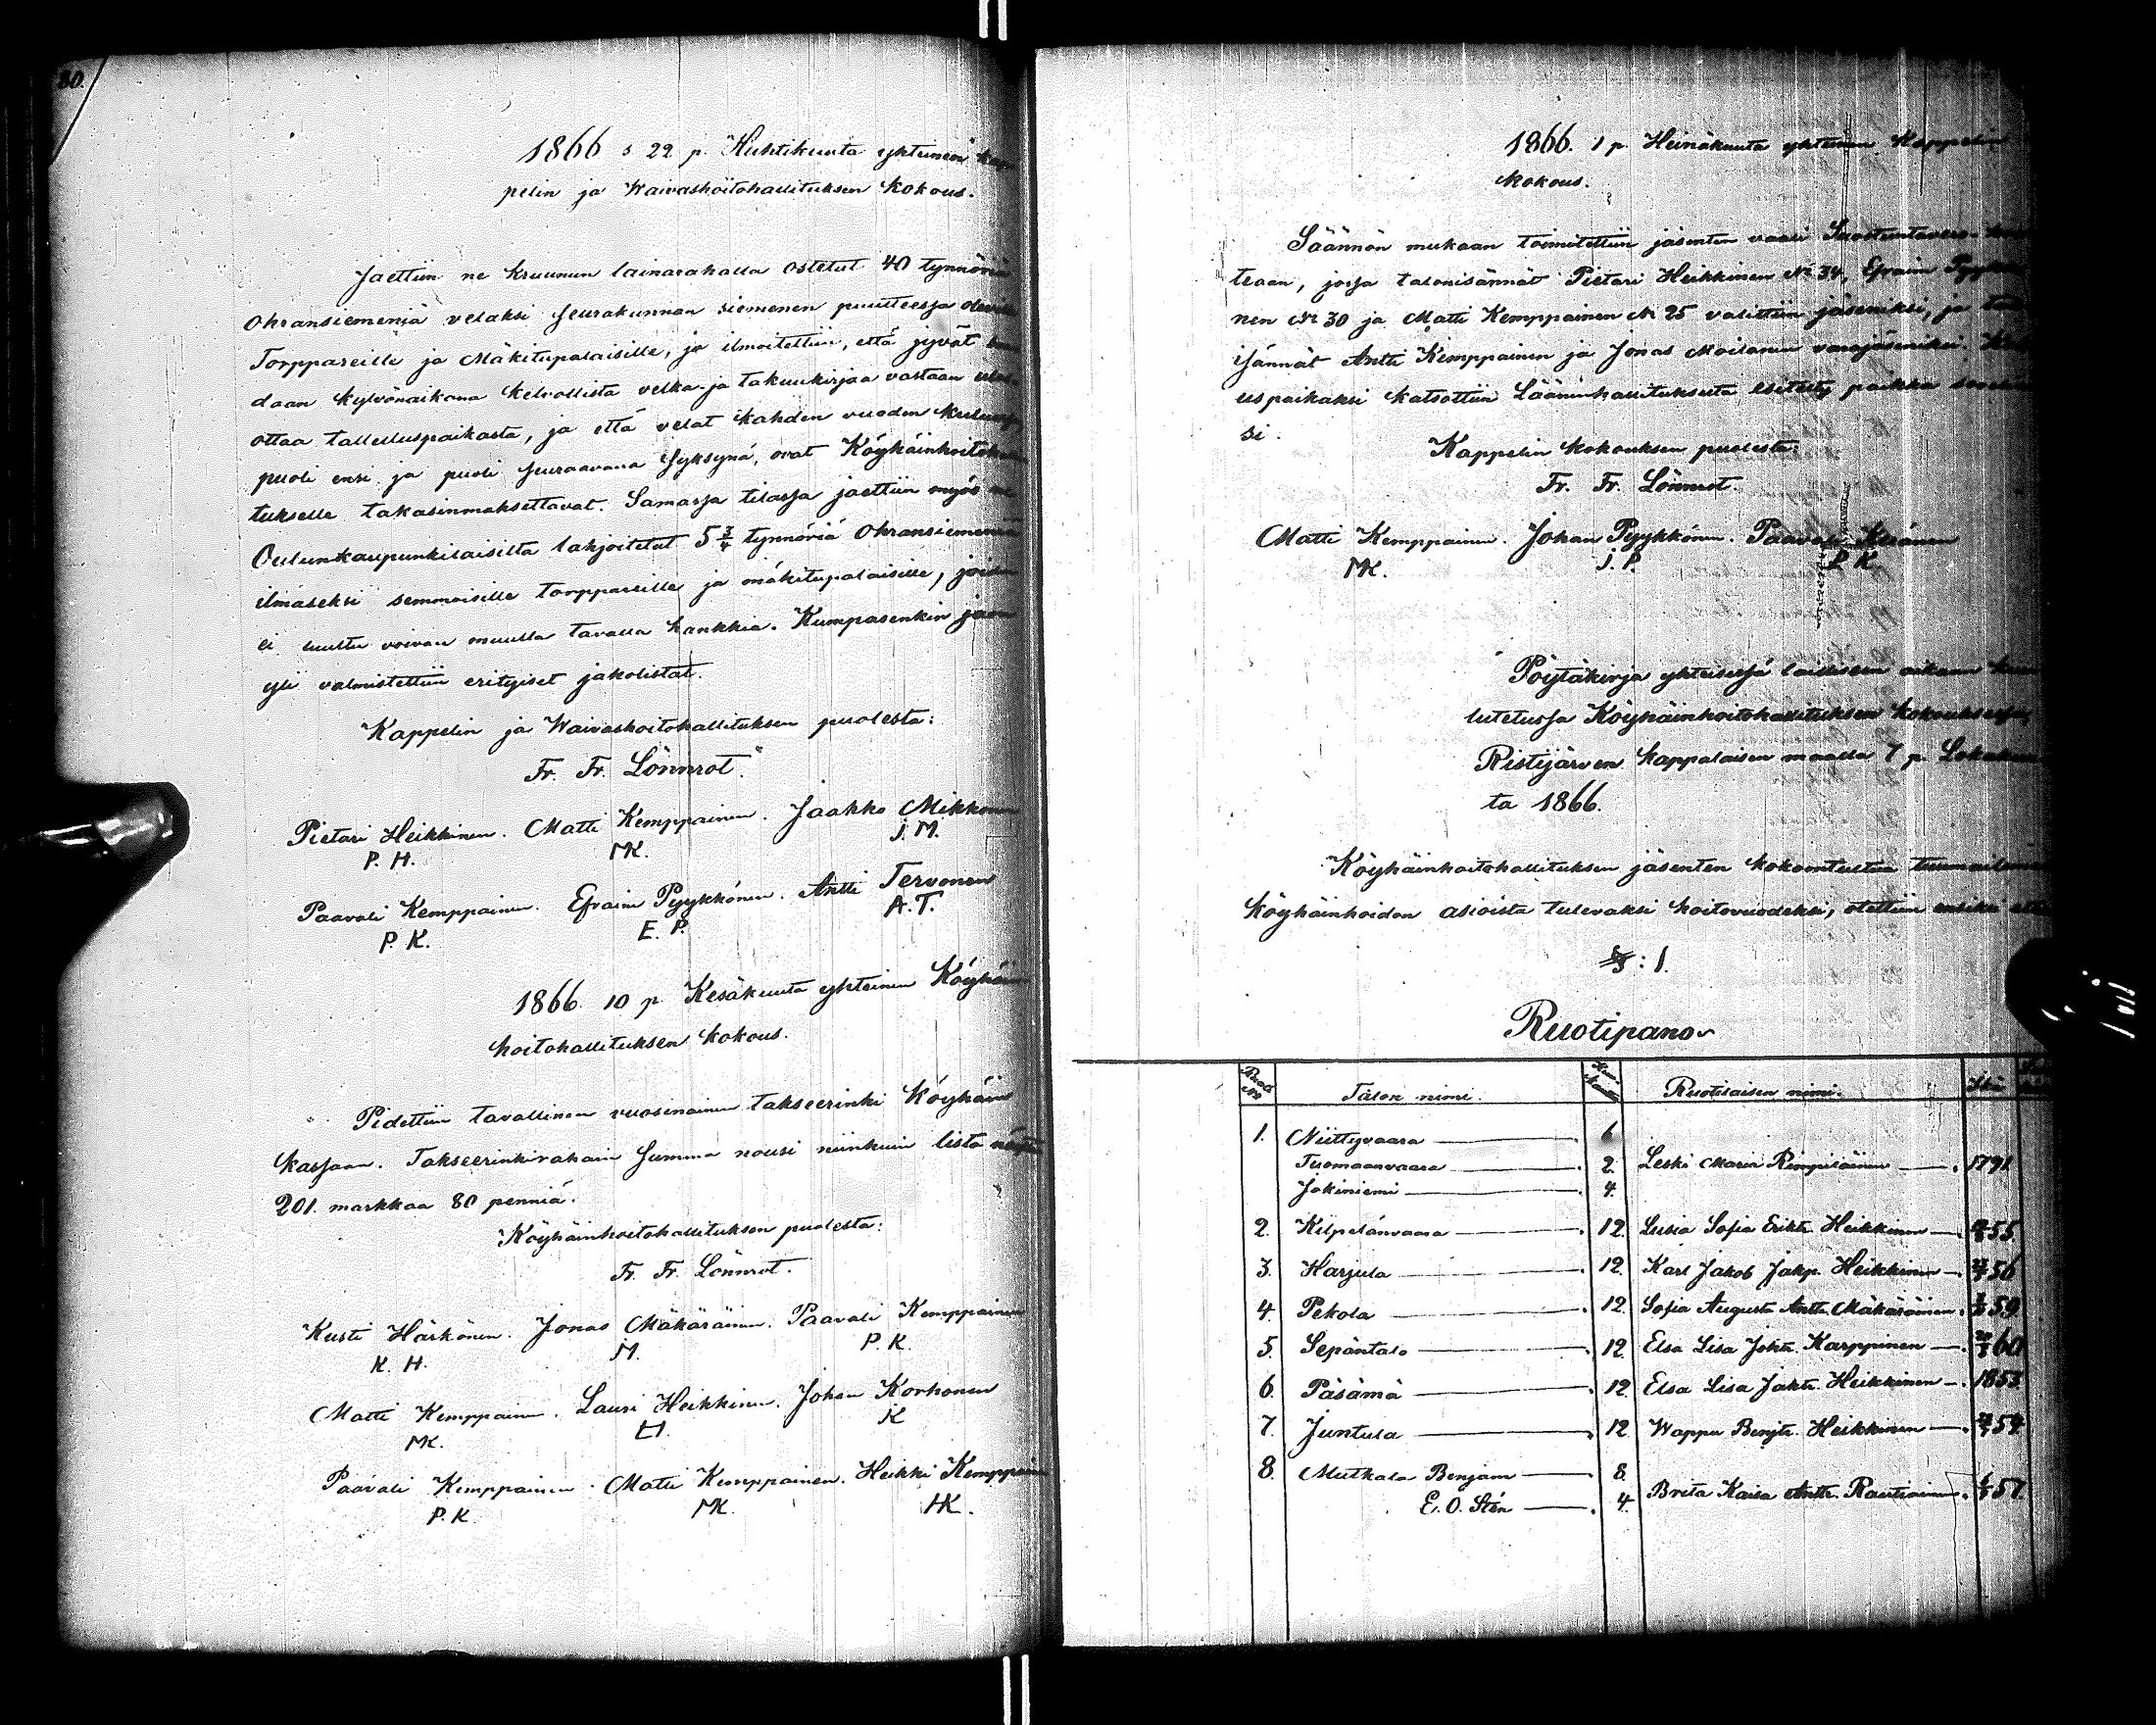 80.
1866 s 22 p. Huhtikuuta yhteinen kap
pelin ja Waivashoitohallituksen kokous.
Jaettiin ne Kruunun lainarahalla ostetut 40 tynnöriä
Ohransiemeniä velaksi seurakunnan siemenen puutteessa olevill
Torppareille ja Mäkitupalaisille, ja ilmoitettiin, että jyvät
daan kylvönaikana kelvollista velka- ja takuukirjaa vastaan
ottaa talletuspaikasta, ja että velat kahden vuoden kuluessa,
puoli ensi ja puoli seuraavana syksynä, ovat Köyhäinhoitohal
tukselle takasinmaksettavat. Samassa tilassa jaettiin myös ne
Oulunkaupunkilaisilta lahjoitetut 5 3/4 tynnöriä Ohransiemeniä
ilmaseksi semmoisille torppareille ja mäkitupalaisille, joiden
ei luultu voivan muulla tavalla hankkia. Kumpasenkin jaon
yli valmistettiin erityiset jakolistat.
Kappelin ja Waivashoitohallituksen puolesta:
Fr. Fr. Lönnrot.
Pietari Heikkinen. Matti Kemppainen. Jaakko Mikkonen
P. H. MK. J. M.
Paavali Kemppainen. Efraim Pyykkönen. Antti Tervonen
P. K. E. P. A. T.
1866. 10 p. Kesäkuuta yhteinen Köyhäin
hoitohallituksen kokous.
Pidettiin tavallinen vuosinainen takseerinki Köyhäin
kassaan. Takseerinkirahain summa nousi niinkuin lista näyttä
201. markkaa 80 penniä.
Köyhäinhoitohallituksen puolesta:
Fr. Fr. Lönnrot.
Kusti Härkönen. Jonas Mäkäräinen. Paavali Kemppainen
K. H. M. P. K.
Matti Kemppainen. Lauri Heikkinen. Johan Korhonen
MK. H. K
Paavali Kemppainen. Matti Kemppainen. Heikki Kemppain
P. K. MK. HK.
1866. 1 p. Heinäkuuta yhteinen Kappelin
kokous.
Säännön mukaan toimitettiin jäsenten vaali Suostuntavero-
teaan, jossa talonisännät Pietari Heikkinen No 34, Efraim Pyykkö
nen No 30 ja Matti Kemppainen No 25 valittiin jäseniksi, ja
isännät Antti Kemppainen ja Jonas Moilanen varajäseniksi.
uspaikaksi katsottiin Lääninhallitukselta esitetty paikka
si.
Kappelin kokouksen puolesta:
Fr. Fr. Lönnrot.
Matti Kemppainen. Johan Pyykkönen. Paavali Keränen
MK. J. P. P. K.
Pöytäkirja yhteisessä lailliseen aikaan kuu
lutetussa Köyhäinhoitohallituksen kokouksessa,
Ristijärven Kappalaisen maalla 7 p. Lokakuu
ta 1866.
Köyhäinhoitohallituksen jäsenten kokoontultua tuumailemaan
köyhäinhoidon asioista tulevaksi hoitovuodeksi, otettiin ensiksi
§: 1.
Ruotipano
Ruoti No Talon nimi. Ruotilaisen nimi.
1. Niittyvaara 6
Tuomaanvaara 2. Leski Maria Rimpiläinen 1791.
Jokiniemi 4.
2. Kilpelänvaara 12. Luisa Sofia Erikt. Heikkinen 55.
3. Harjula 12. Karl Jakob Jakp. Heikkinen 56
4. Pekola 12. Sofia Augusta Antt. Mäkäräinen 59.
5. Sepäntalo 12. Elsa Lisa Joht. Karppinen 60
6. Päsämä 12 Elsa Lisa Jakt. Heikkinen 1853.
7. Juntula 12 Wappu Benjt. Heikkinen 54.
8. Mutkala Benjam 8.
E. O. Stén 4. Brita Kaisa Antt. Rautiainen 57.